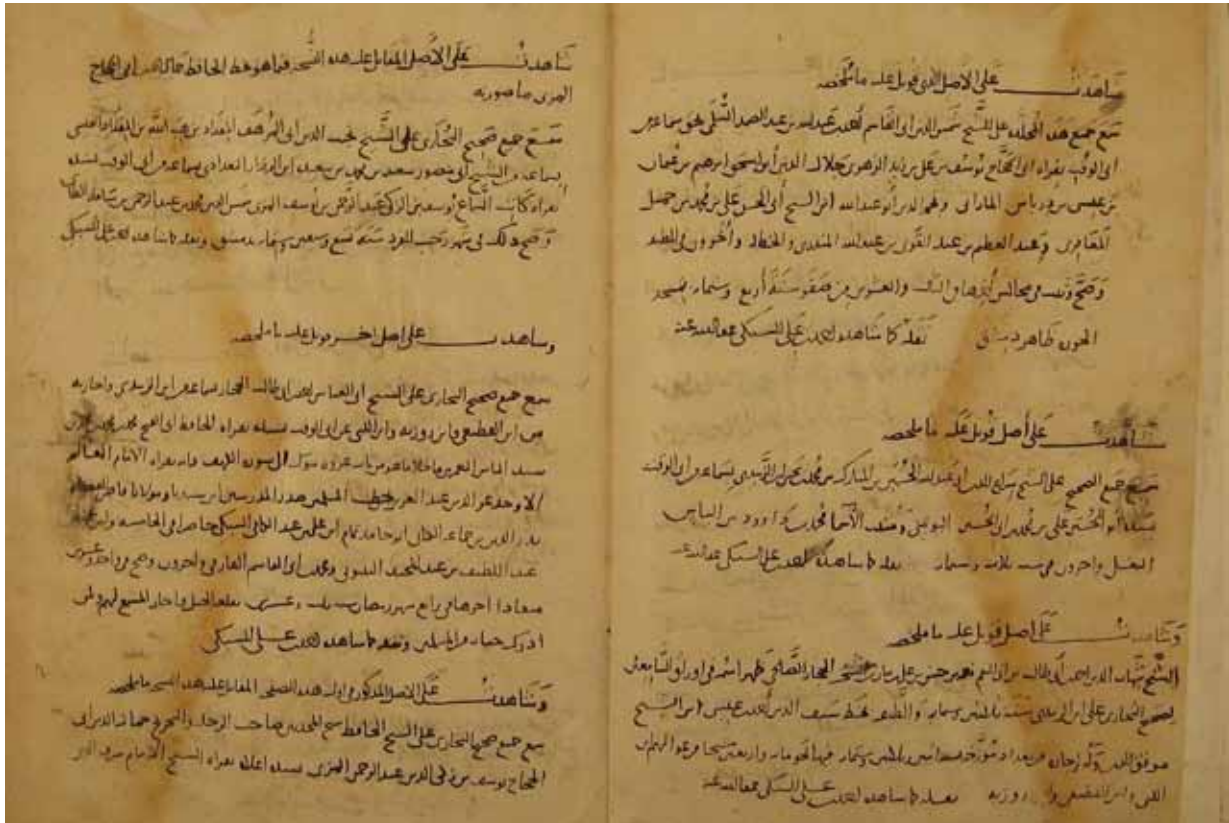 شاهدت على الاصل الذي قوبل عليه ما ملخصه
سمع جميع هذه المجلدة على الشيخ شمس الدين ابي القاسم احمد بن عبد الله بن عبد الصمد السلمي بحق سماعه من
ابي الوقت بقراءة ابي الحجاج يوسف بن علي بن زيد الزهري جلال الدين ابو اسحق ابرهيم بن عثمان
بن عيسى بن درباس الماراني وفخر الدين ابو عبد الله ابن الشيخ ابي الحسن علي بن محمد بن جميل
المعافري وعبد العظيم بن عبد القوي بن عبد الله المنذري والخط له واخرون في الطبقة
وصح وثبت في مجالس اخرها الثالث والعشرين من صفر سنة اربع وستمايه
ظاهر دمشق نقله كما شاهده احمد بن علي السبكي عفا الله عنه
شاهدت على اصل قوبل عليه ما ملخصه
سمع جميع الصحيح على الشيخ سراج الدين ابي عبد الله الحسين بن المبارك بن محمد بن يحيى ابن الزبيدي بسماعه من ابي الوقت
بسنده ابو الحسين علي بن محمد بن ابي الحسين اليونيني ومثبت الاسما محمد بن داوود بن الياس
البعلي واخرون في سنة ثلاثين وستمايه نقله كما شاهده احمد بن علي السبكي عفا الله عنه
وشاهدت على اصل قوبل عليه ما ملخصه
الشيخ شهاب الدين احمد بن ابي طالب بن ابي النعم نعمه بن حسن بن علي بن بيان الحجار الصالحي ظهر اسمه في اوراق السامعين
لصحيح البخاري على ابن الزبيدي سنة ثلثين وستمايه والطبقة بخط سيف الدين احمد بن عيسى ابن الشيخ
موفق الدين وله اجازه من بغداد مؤرخه سنة ثلثين وستمايه فيها نحو مايه واربعين شيخا
اللتي وابن القطيعي وابن روزبه نقله كما شاهده احمد بن علي السبكي عفا الله عنه
شاهدت على الاصل المقابل عليه هذه النسخه فيما هو بخط الحافظ جمال الدين ابي الحجاج
المزي ما صورته
سمع جميع صحيح البخاري على الشيخ نجيب الدين ابي المرهف المقداد بن هبة الله بن المقداد القيسي
بسماعه من الشيخ ابي منصور سعيد بن محمد بن سعيد ابن الرزاز البغدادي بسماعه من ابي الوقت بسنده
بقراءة كاتب السماع يوسف بن الزكي عبد الرحمن بن يوسف المزي شمس الدين محمد بن عبد الرحمن بن سامه الطائي
وصح ذلك في شهر رجب الفرد سنة تسع وسبعين وستمايه بدمشق ونقله كما شاهده احمد بن علي السبكي
وشاهدت على اصل اخر قوبل عليه ما ملخصه
سمع جميع صحيح البخاري على الشيخ ابي العباس احمد بن ابي طالب الحجار بسماعه من ابن الزبيدي واجازته
من ابن القطيعي وابن روزبه وابن اللتي عن ابي الوقت بسنده بقراءة الحافظ ابي الفتح محمد بن محمد بن محمد بن
سيد الناس اليعمري ما خلا من باب غزوة تبوك الى فانه بقراءة الامام العالم
الاوحد عز الدين عبد العزيز صدر المدرسين ابن سيدنا ومولانا قاضي القضاة
بدر الدين بن جماعه ابو حامد تمام ابن علي بن عبد الكافي السبكي حاضرا في الخامسه
عبد اللطيف بن عبد المجيد ومحمد بن ابي القاسم الفارقي واخرون وصح في احد وعشرين
ميعادا اخرها في رابع شهر رمضان سنة وعشرين بقلعة الجبل واجاز المسمع لهم ولمن
ادرك حياته من المسلمين ونقله كما شاهده احمد بن علي السبكي
وشاهدت على الاصل المذكور في اول هذه الصفحه المقابل عليه هذه النسخه ما ملخصه
سمع جميع صحيح البخاري على الشيخ الحافظ شيخ المحدثين صاحب الرحله جمال الدين ابي
الحجاج يوسف بن زكي الدين عبد الرحمن المزي بسنده اعلاه بقراءة الشيخ الامام شرف الدين